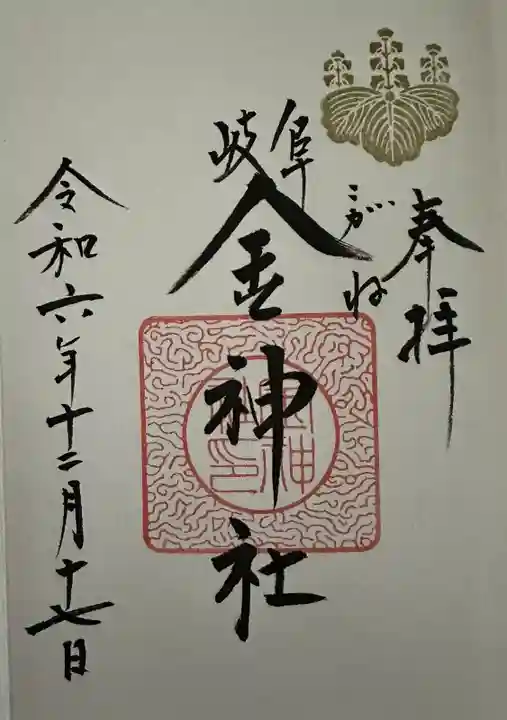 奉拝
こがね
岐阜
金神社
令和六年十二月十七日